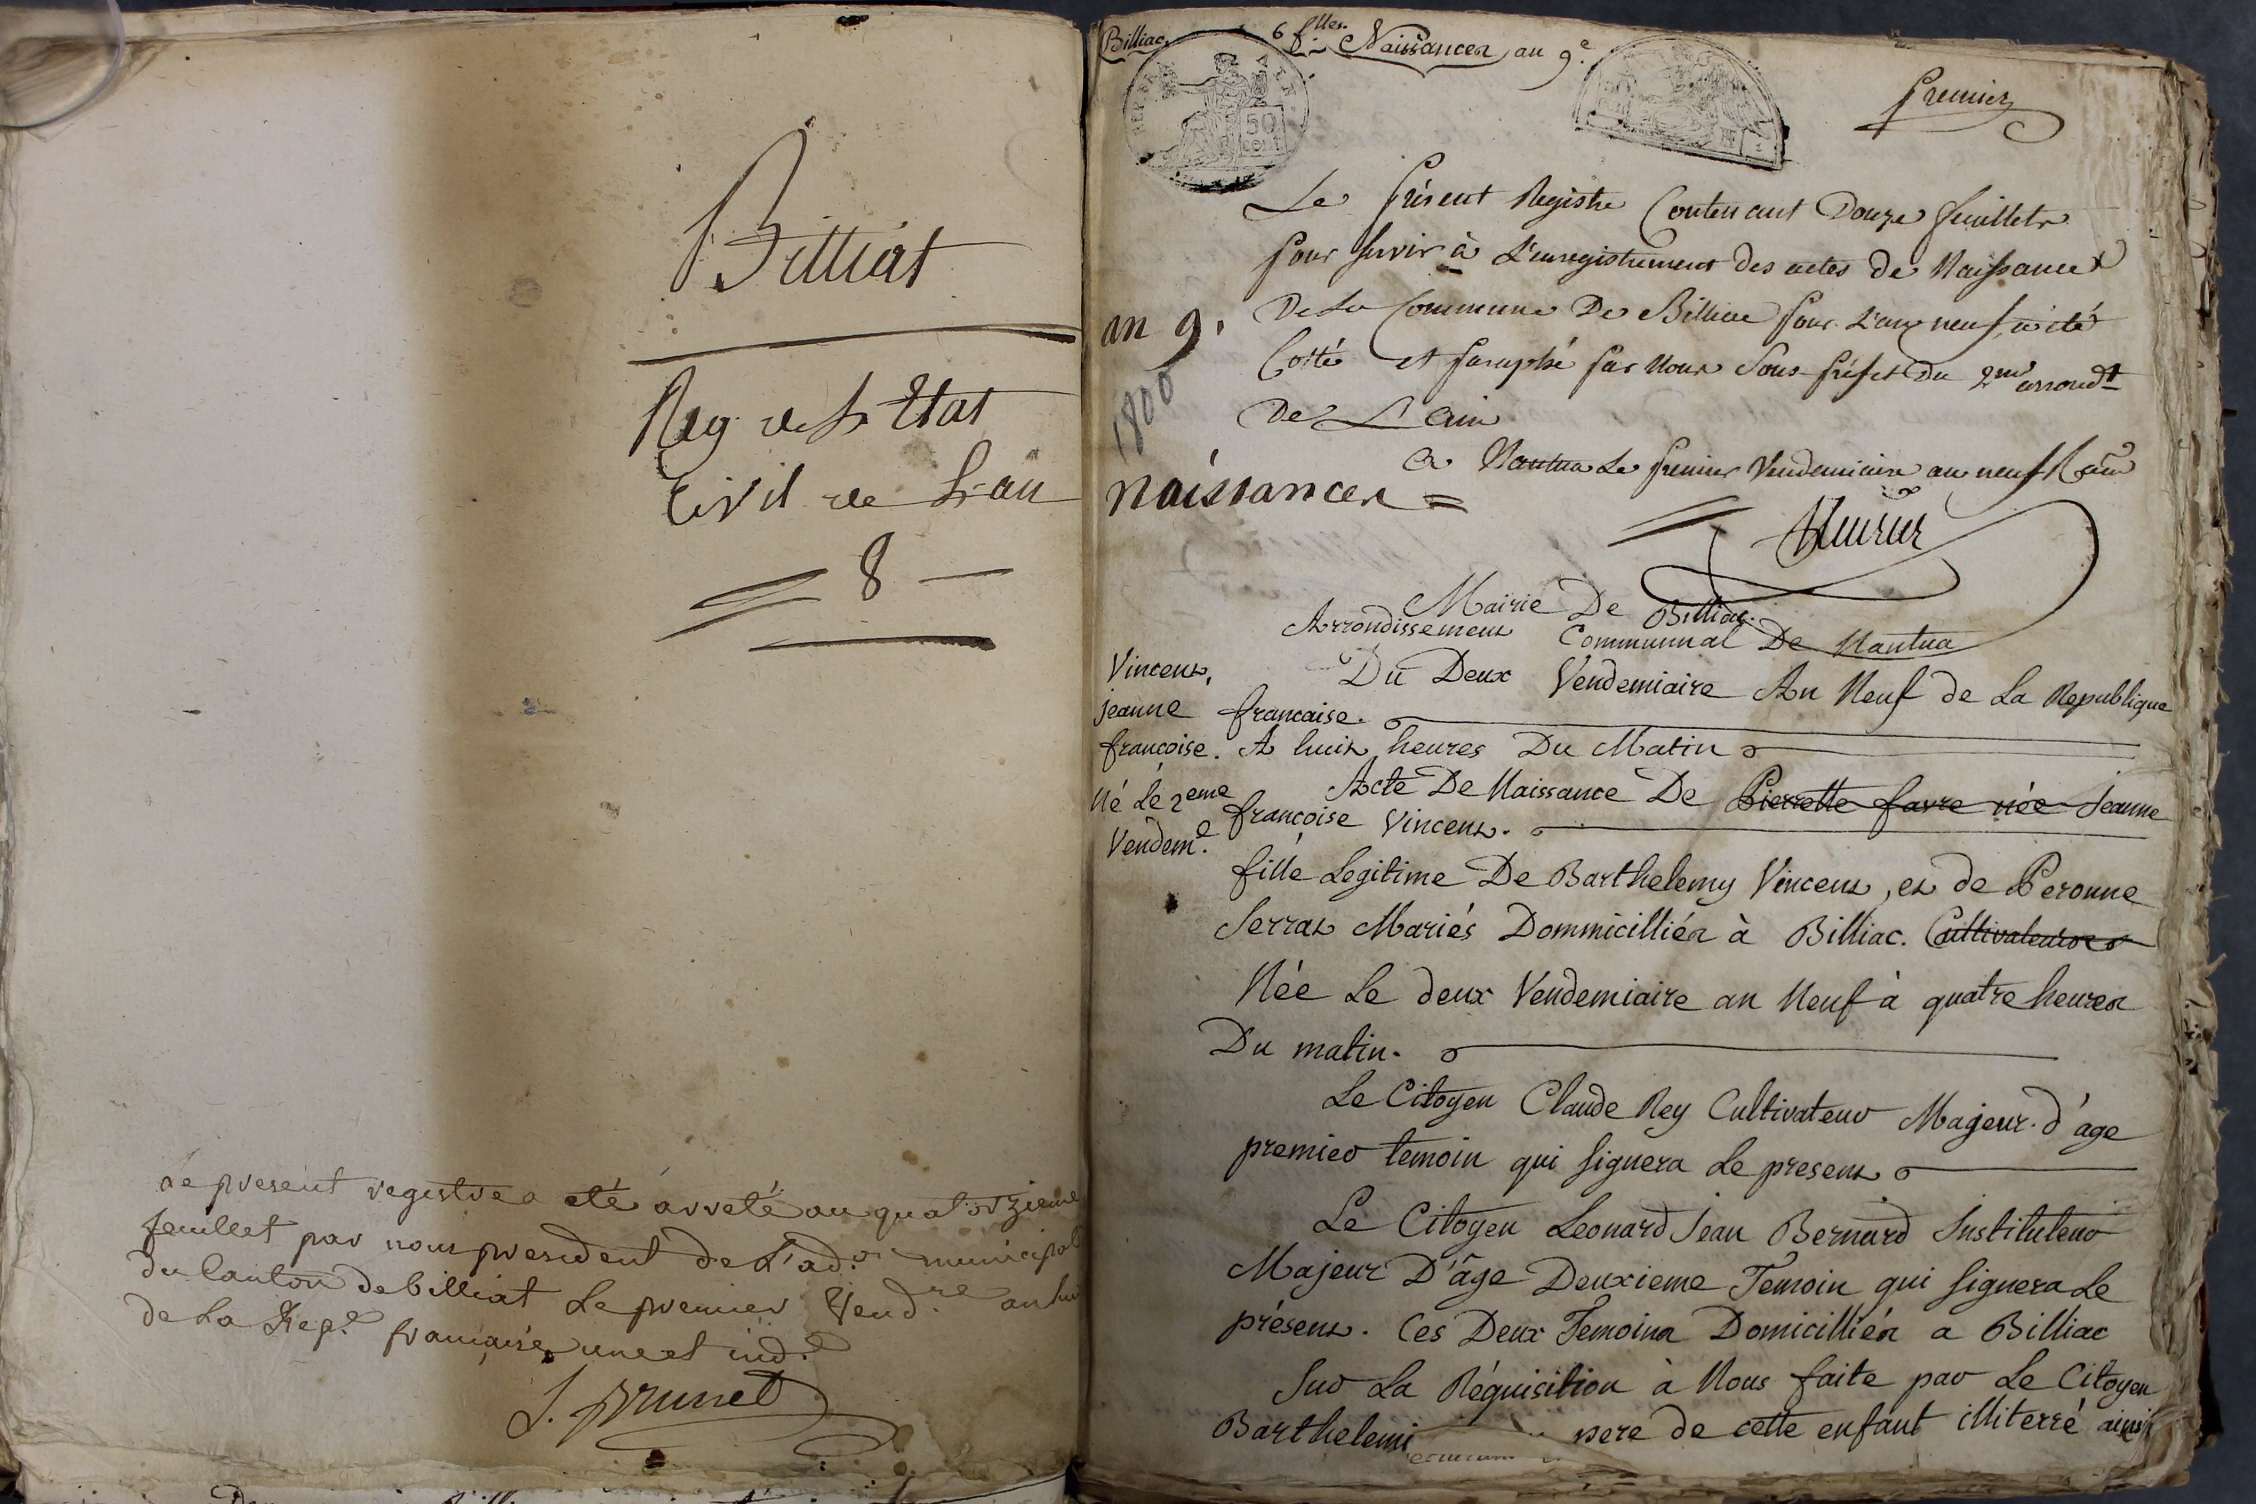 Billiat
Reg. de L'Etat
Civil de L'an
8
Le present registre a eté arreté au quatorzieme
feuillet par nous president de L'ad.on municipal
du Canton de billiat Le premier Vend.re an hui
de La Rep.e francaise une et ind.e
J. Brunet
Billiac
6 f.lles Naissances an 9.e
REP. FRA
50
cent
Premier
Le Présent Registre Contenant Douze feuillets
pour servir à L'enregistrement des actes de Naissances
an 9.
De La Commune De Billiac pour L'an neuf, à été
Cotté et paraphé par Nous Sous-préfet du 2me arrondt
1800
De L'Ain
A Nantua Le premier Vendemiaire an neuf
Naissances =
Mairie De Billiac.
Arrondissement Communnal De Nantua
Vincent,
Jeanne
françoise.
Né Le 2eme
Vendem.e
Du Deux Vendemiaire An Neuf de La Republique
francaise.
A huit heures Du Matin
Acte De Naissance De Pierrette favre née Jeanne
françoise Vincent.
fille Legitime De Barthelemy Vincent, et de Peronne
Serrat Mariés Dommicilliés à Billiac. Cultivateurs
Née Le deux Vendemiaire an Neuf à quatre heures
Du matin.
Le Citoyen Claude Rey Cultivateur Majeur d'âge
premier temoin qui signera Le present
Le Citoyen Leonard Jean Bernard Instituteur
Majeur D'âge Deuxieme Temoin qui signera Le
présent. Ces Deux Temoins Domicilliés a Billiac
Sur La Réquisition à Nous faite par Le Citoyen
Barthelemi pere de cette enfant illiterré ainsi